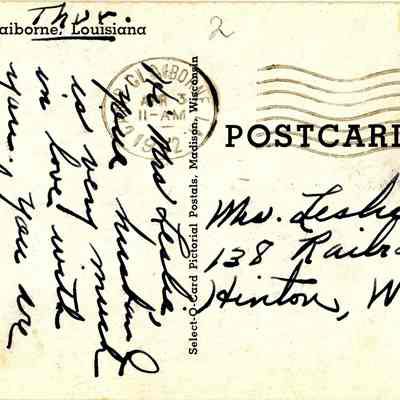 Thur.
aiborne, Louisiana
2
CLAIBORNE
APR 3
11-AM
POSTCARD
Select-O-Card Pictorial Postals, Madison, Wisconsin
Mrs Leslie
your husband
is very much
in love with
you. you are
Mrs. Leslie
138 Railro
Hinton, W